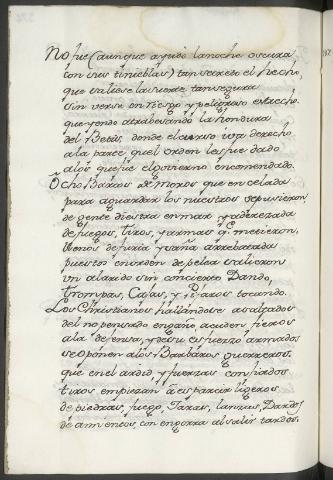 No fue (aunque ayudo la noche oscura
con sus tinieblas) tan secreto el hecho,
que saliese la suerte tan segura
sin verse en riesgo y peligroso estrecho.
que yendo atrabesando la hondura
del Betis donde el curso iva derecho
a la parte quel orden les fue dado
a los que fue el govierno encomendado.
Ocho Barcos de moros que en celada
para aguardar los nuestros se pusieron,
de gente diestra en mar y aderezada
de fuegos, tiros, y armas q. metieron,
llenos de furia y saña arrebatada
puestos en orden de pelea salieron
un alarido sin concierto Dando,
trompas, Cajas, y Pifaros tocando.
Los Christianos hallandose asaltados
del no pensado engaño, acuden fieros
a la defensa, y de su esfuerzo armados
se oponen a los Barbaros guerreros.
que en el ardid, y fuerzas confiados
tiros empiezan a esparcir ligeros
de piedras, fuego, Jaras, lanzas, Dardos
de armientos, con engorra al salir tardos.